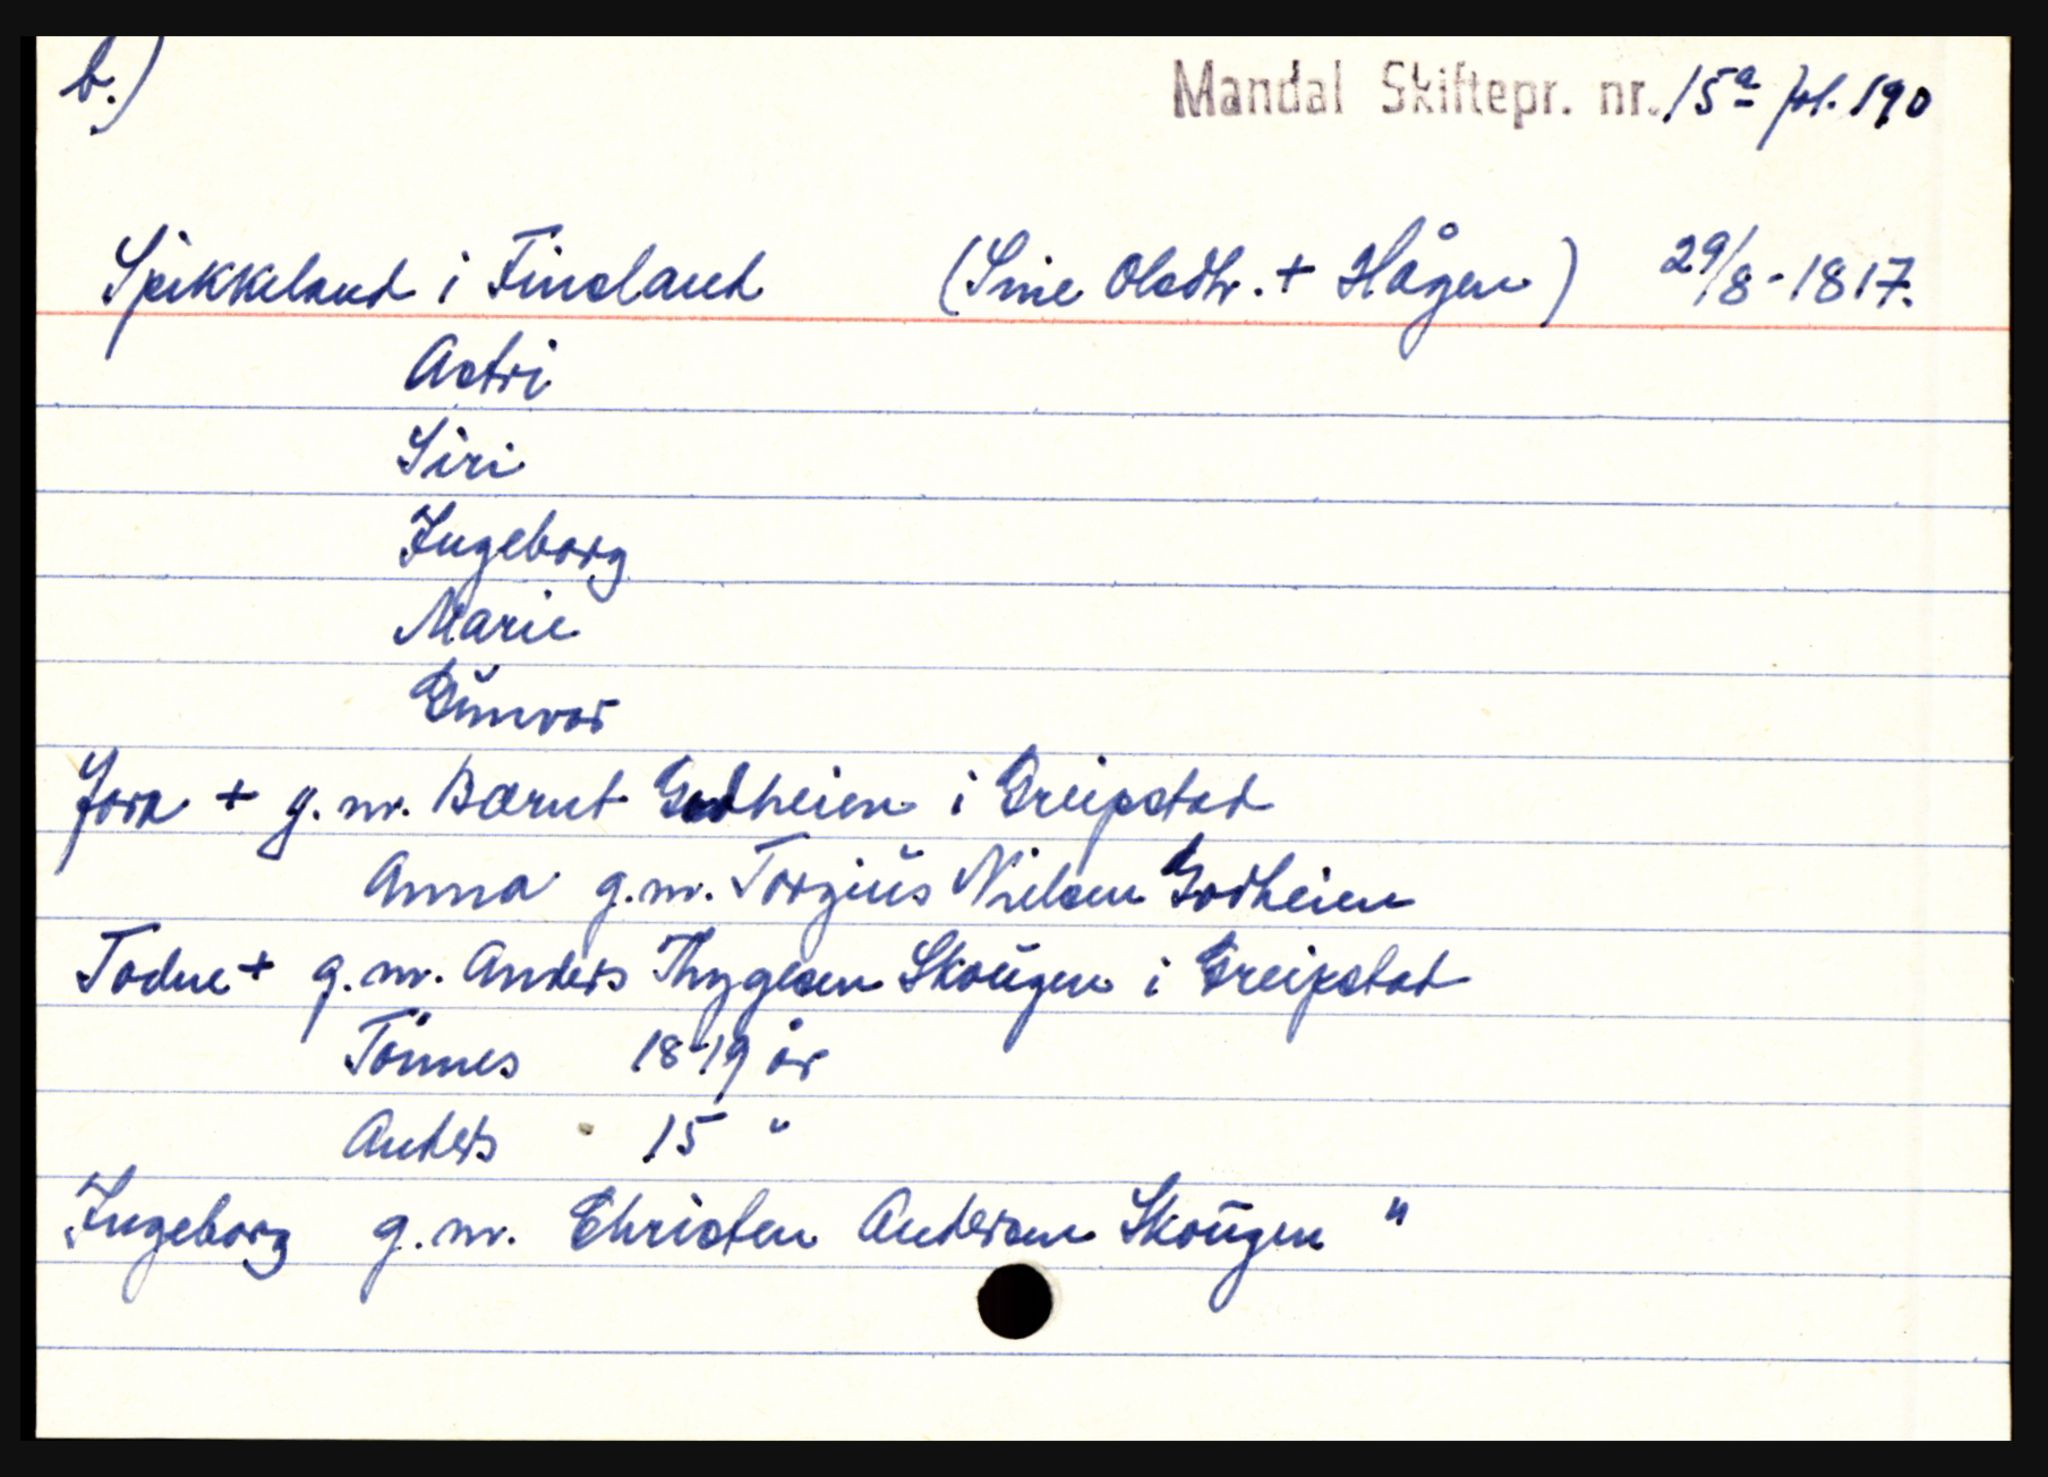 b.)
Mandal Skiftepr. nr. 15a fol. 190
Spikkeland i Findland (Sine Olsdtr. + Hågen) 29/8-1817.
Astri
Siri
Ingeborg
Marie
Gŭnvor
Jora + g. m. Bærnt Godheien i Greipstad
Anna g.m. Torgiŭs Nielsen Godheien
Todne + g. m. Anders Thygesen Skoŭgen i Greipstad
Tönnes 18-19 år
Anders 15 "
Ingeborg g. m. Christen Andersen Skoŭgen "